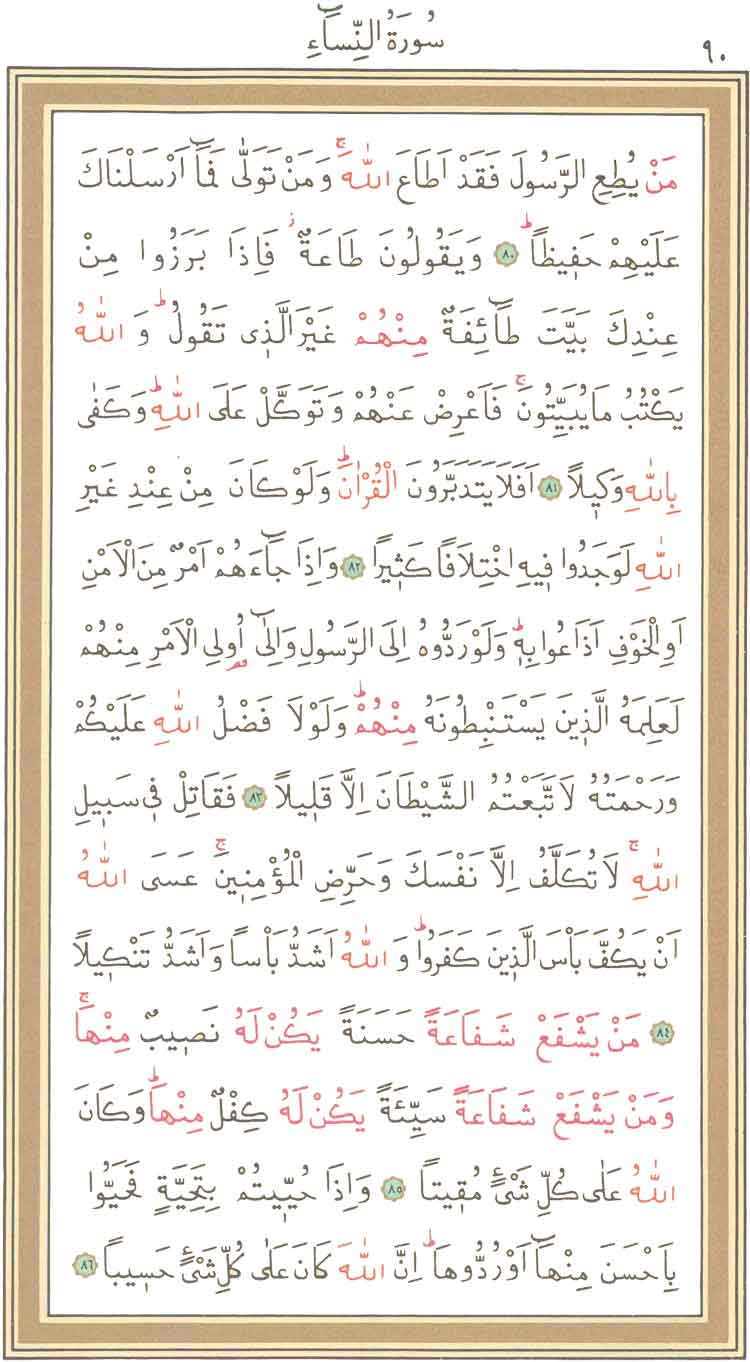 سُورَةُ النِّسَٓاءِ ٩٠
مَنْ يُطِعِ الرَّسُولَ فَقَدْ اَطَاعَ اللّٰهَۚ وَمَنْ تَوَلّٰى فَمَٓا اَرْسَلْنَاكَ
عَلَيْهِمْ حَف۪يظاًۜ ﴿٨٠﴾ وَيَقُولُونَ طَاعَةٌۘ فَاِذَا بَرَزُوا مِنْ
عِنْدِكَ بَيَّتَ طَٓائِفَةٌ مِنْهُمْ غَيْرَ الَّذ۪ي تَقُولُۜ وَاللّٰهُ
يَكْتُبُ مَا يُبَيِّتُونَۚ فَاَعْرِضْ عَنْهُمْ وَتَوَكَّلْ عَلَى اللّٰهِۜ وَكَفٰى
بِاللّٰهِ وَك۪يلاً ﴿٨١﴾ اَفَلَا يَتَدَبَّرُونَ الْقُرْاٰنَۜ وَلَوْ كَانَ مِنْ عِنْدِ غَيْرِ
اللّٰهِ لَوَجَدُوا ف۪يهِ اخْتِلَافاً كَث۪يراً ﴿٨٢﴾ وَاِذَا جَٓاءَهُمْ اَمْرٌ مِنَ الْاَمْنِ
اَوِ الْخَوْفِ اَذَاعُوا بِه۪ۜ وَلَوْ رَدُّوهُ اِلَى الرَّسُولِ وَاِلٰٓى اُو۬لِي الْاَمْرِ مِنْهُمْ
لَعَلِمَهُ الَّذ۪ينَ يَسْتَنْبِطُونَهُ مِنْهُمْۜ وَلَوْلَا فَضْلُ اللّٰهِ عَلَيْكُمْ
وَرَحْمَتُهُ لَاتَّبَعْتُمُ الشَّيْطَانَ اِلَّا قَل۪يلاً ﴿٨٣﴾ فَقَاتِلْ ف۪ي سَب۪يلِ
اللّٰهِۚ لَا تُكَلَّفُ اِلَّا نَفْسَكَ وَحَرِّضِ الْمُؤْمِن۪ينَۚ عَسَى اللّٰهُ
اَنْ يَكُفَّ بَأْسَ الَّذ۪ينَ كَفَرُواۜ وَاللّٰهُ اَشَدُّ بَأْساً وَاَشَدُّ تَنْك۪يلاً
﴿٨٤﴾ مَنْ يَشْفَعْ شَفَاعَةً حَسَنَةً يَكُنْ لَهُ نَص۪يبٌ مِنْهَاۚ
وَمَنْ يَشْفَعْ شَفَاعَةً سَيِّئَةً يَكُنْ لَهُ كِفْلٌ مِنْهَاۜ وَكَانَ
اللّٰهُ عَلٰى كُلِّ شَيْءٍ مُق۪يتاً ﴿٨٥﴾ وَاِذَا حُيّ۪يتُمْ بِتَحِيَّةٍ فَحَيُّوا
بِاَحْسَنَ مِنْهَٓا اَوْ رُدُّوهَاۜ اِنَّ اللّٰهَ كَانَ عَلٰى كُلِّ شَيْءٍ حَس۪يباً ﴿٨٦﴾